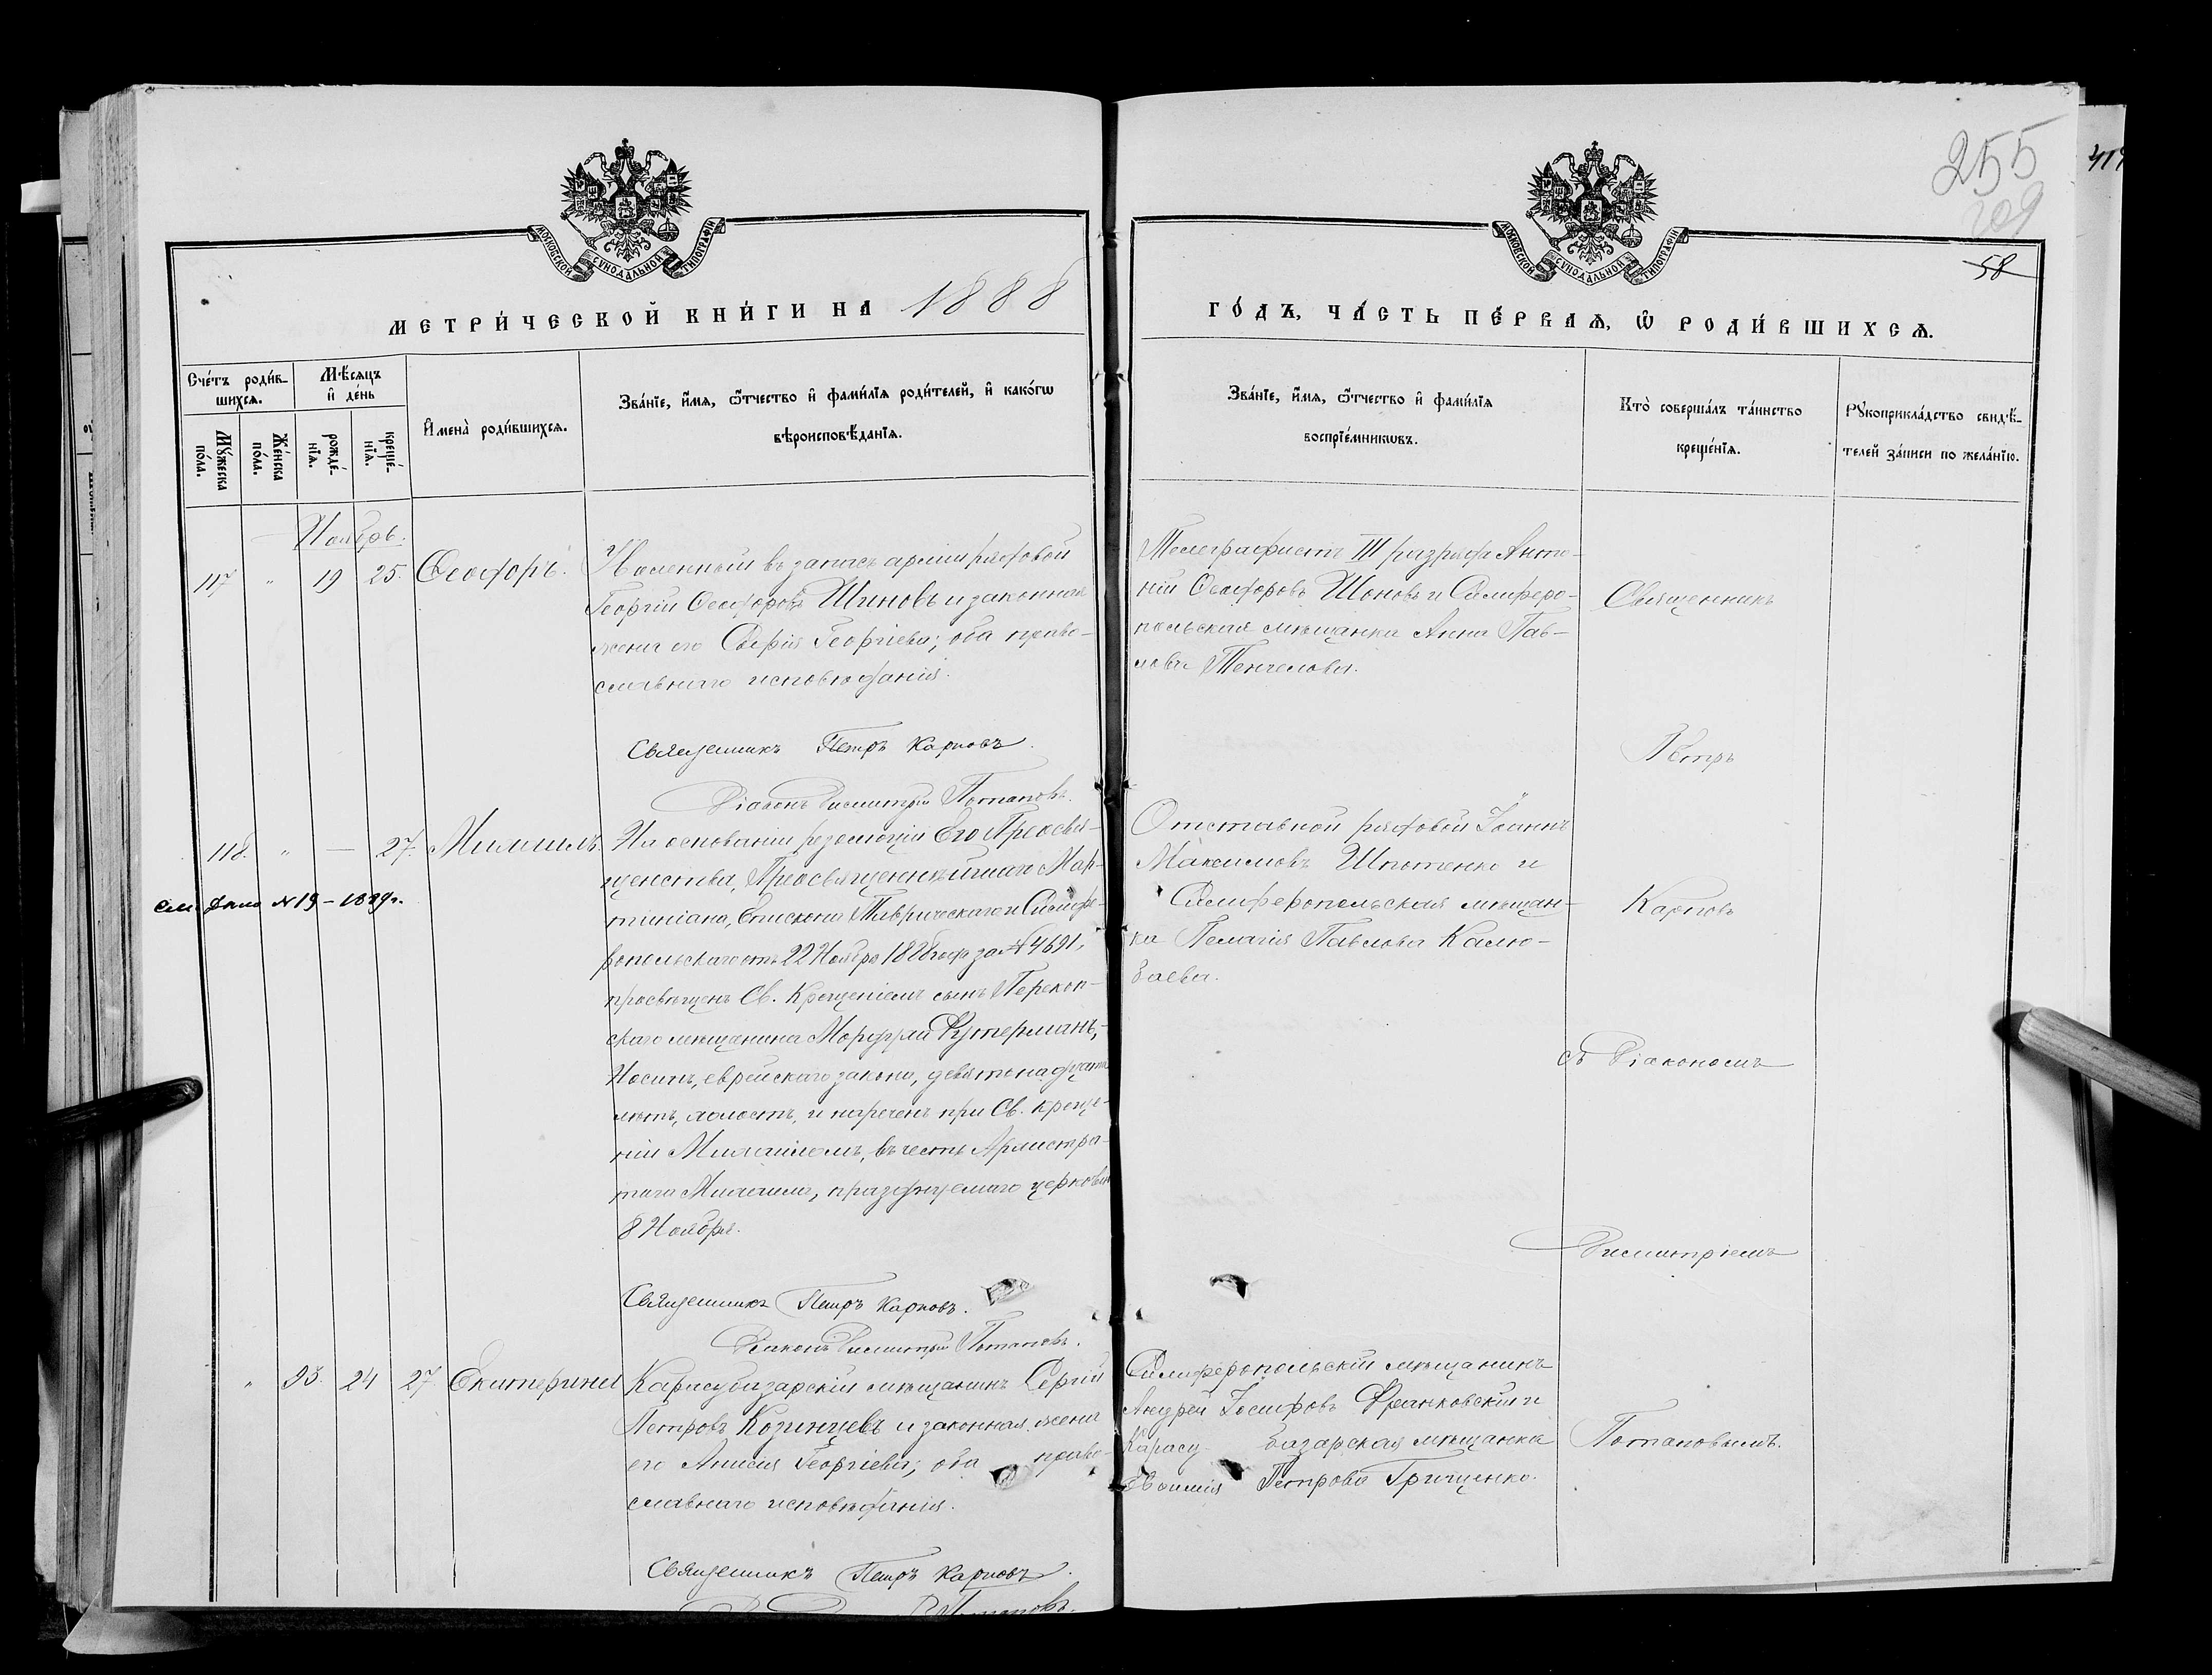 255
209
419
58
МОСКОВСКОЙ СѴНОДАЛЬНОЙ ТИПОГРАФІИ
МОСКОВСКОЙ СѴНОДАЛЬНОЙ ТИПОГРАФІИ
МЕТРИ́ЧЕСКОЙ КНИ́ГИ НА 1888
ГО́ДЪ, ЧА́СТЬ ПЕ́РВАѦ, Ѽ РОДИ́ВШИХСѦ.
Сче́тъ роди́в-
шихсѧ.
Мѣ́сѧцъ
и҆ де́нь
Мꙋ́жеска
по́ла.
Же́нска
по́ла.
рожде́-
нїѧ.
креще́-
нїѧ.
И҆мена̀ роди́вшихсѧ.
Зва́нїе, и҆́мѧ, ѻ҆́тчество и҆ фами́лїѧ роди́телей, и҆ како́гѡ
вѣроисповѣ́данїѧ.
Зва́нїе, и҆́мѧ, ѻ҆́тчество и҆ фами́лїѧ
воспрїе́мникѡвъ.
Кто̀ соверша́лъ та́инство
креще́нїѧ.
Рꙋкоприкла́дство свидѣ́-
телей за́писи по жела́нїю.
Ноябрь.
117 " 19 25. Ѳеодоръ.
Уволенный въ запасъ арміи рядовой
Георгій Ѳеодоровъ Шиновъ и законная
жена его Софія Георгіева; оба право-
славнаго исповѣданія.
Священникъ Петръ Карповъ.
Діаконъ Димитрій Потаповъ.
Телеграфистъ III разряда Анто-
ній Ѳеодоровъ Шоновъ и Симферо-
польская мѣщанка Анна Пав-
лова Тенчелова.
Священникъ
Петръ
Карповъ
съ Діакономъ
Димитріемъ
Потаповымъ.
118. " — 27. Михаилъ.
см. дѣло №19 – 1889г.
На основаніи резолюціи Его Преосвя-
щенства, Преосвященнѣйшаго Мар-
тиніана, Епископа Таврическаго и Симфе-
ропольскаго отъ 22 Ноября 1888 года за №4691,
просвѣщенъ Св. Крещеніемъ сынъ Перекоп-
скаго мѣщанина Мордхай Футерманъ,
Иосипъ, еврейскаго закона, девятнадцати
лѣтъ, холостъ, и нареченъ при Св. креще-
ніи Михаиломъ, въ честь Архистра-
тига Михаила, празднуемаго церковью
8 Ноября.
Священникъ Петръ Карповъ.
Діаконъ Димитрій Потаповъ.
Отставной рядовой Іоаннъ
Максимовъ Шпотенко и
Симферопольская мѣщан-
ка Пелагія Павлова Калю-
баева.
" 93. 24 27. Екатерина
Карасубазарскій мѣщанинъ Сергій
Петровъ Козинцевъ и законная жена
его Анисія Георгіева; оба право-
славнаго исповѣданія.
Священникъ Петръ Карповъ.
Потаповъ.
Симферопольскій мѣщанинъ
Андрей Іосифовъ Франковскій и
Карасу-базарская мѣщанка
Евфимія Петрова Грищенко.